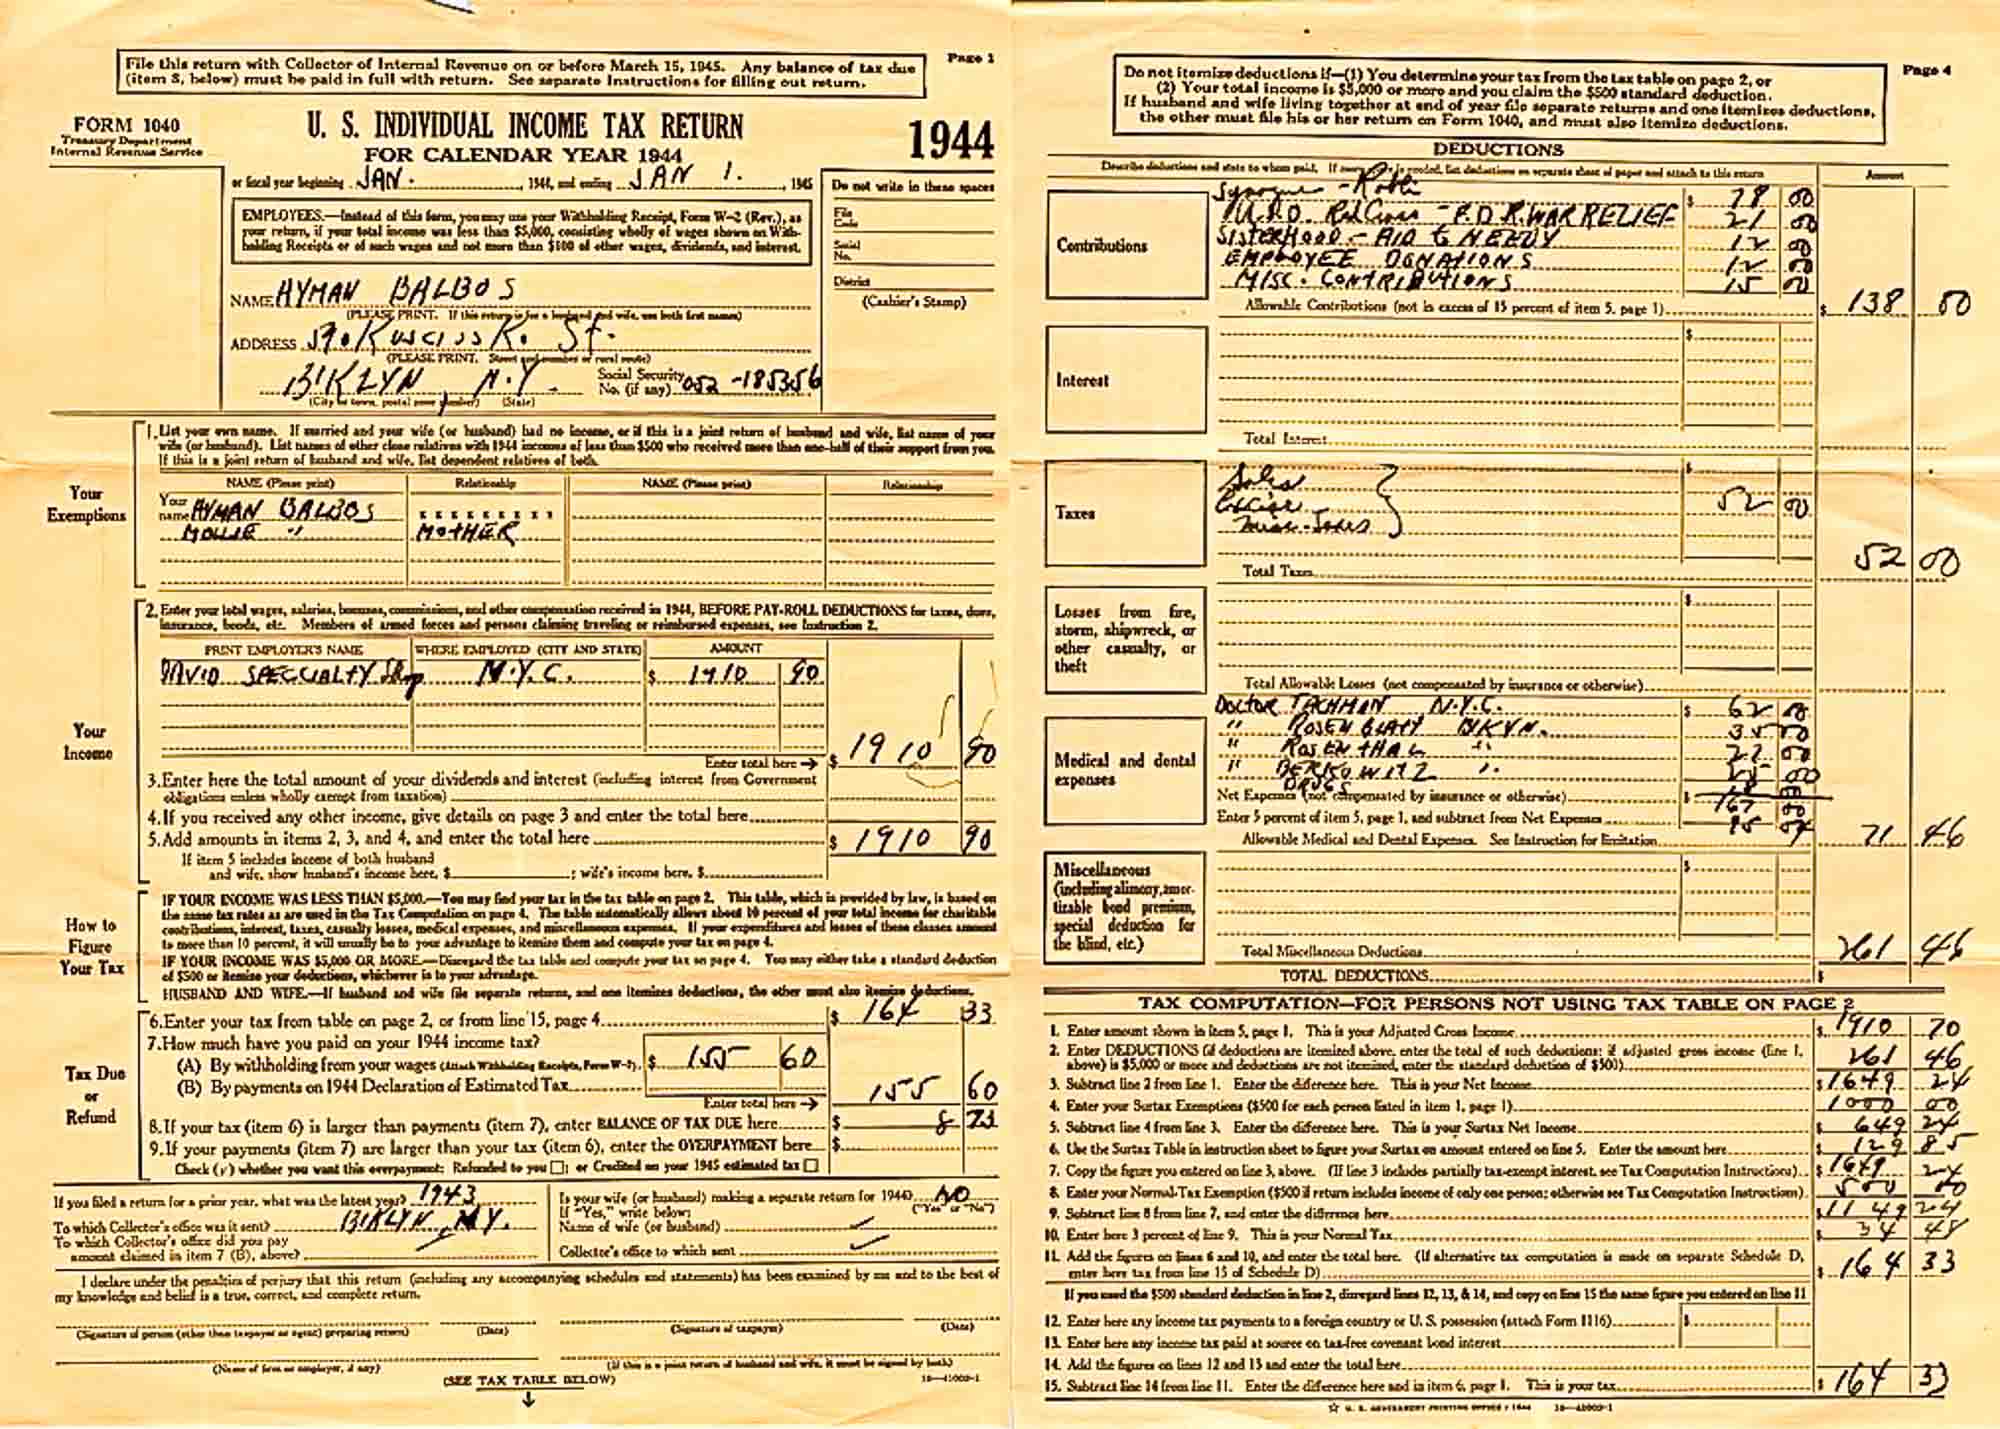 File this return with Collector of Internal Revenue on or before March 15, 1945. Any balance of tax due
(item 8, below) must be paid in full with return. See separate Instructions for filling out return.
Page 1
FORM 1040
Treasury Department
Internal Revenue Service
U. S. INDIVIDUAL INCOME TAX RETURN
FOR CALENDAR YEAR 1944
1944
or fiscal year beginning JAN. , 1944, and ending JAN 1. , 1945
EMPLOYEES.—Instead of this form, you may use your Withholding Receipt, Form W-2 (Rev.), as
your return, if your total income was less than $5,000, consisting wholly of wages shown on With-
holding Receipts or of such wages and not more than $100 of other wages, dividends, and interest.
Do not write in these spaces
File
Code
Serial
No.
District
(Cashier's Stamp)
NAME HYMAN BALBOS
(PLEASE PRINT. If this return is for a husband and wife, use both first names)
ADDRESS St.
(PLEASE PRINT. Street and number or rural route)
B'KLYN, N.Y.
(City or town, postal zone number) (State)
Social Security
No. (if any) 052-185356
Your
Exemptions
1. List your own name. If married and your wife (or husband) had no income, or if this is a joint return of husband and wife, list name of your
wife (or husband). List names of other close relatives with 1944 incomes of less than $500 who received more than one-half of their support from you.
If this is a joint return of husband and wife, list dependent relatives of both.
NAME (Please print) Relationship NAME (Please print) Relationship
Your
name HYMAN BALBOS x x x x x x x x x
MOLLIE " MOTHER
Your
Income
2. Enter your total wages, salaries, bonuses, commissions, and other compensation received in 1944, BEFORE PAY-ROLL DEDUCTIONS for taxes, dues,
insurance, bonds, etc. Members of armed forces and persons claiming traveling or reimbursed expenses, see Instruction 2.
PRINT EMPLOYER'S NAME WHERE EMPLOYED (CITY AND STATE) AMOUNT
DAVID SPECIALTY Shop N.Y.C. $ 1910 90
Enter total here → $ 1910 90
3. Enter here the total amount of your dividends and interest (including interest from Government
obligations unless wholly exempt from taxation)
4. If you received any other income, give details on page 3 and enter the total here
5. Add amounts in items 2, 3, and 4, and enter the total here $ 1910 90
If item 5 includes income of both husband
and wife, show husband's income here, $ ; wife's income here, $
How to
Figure
Your Tax
IF YOUR INCOME WAS LESS THAN $5,000.—You may find your tax in the tax table on page 2. This table, which is provided by law, is based on
the same tax rates as are used in the Tax Computation on page 4. The table automatically allows about 10 percent of your total income for charitable
contributions, interest, taxes, casualty losses, medical expenses, and miscellaneous expenses. If your expenditures and losses of these classes amount
to more than 10 percent, it will usually be to your advantage to itemize them and compute your tax on page 4.
IF YOUR INCOME WAS $5,000 OR MORE.—Disregard the tax table and compute your tax on page 4. You may either take a standard deduction
of $500 or itemize your deductions, whichever is to your advantage.
HUSBAND AND WIFE.—If husband and wife file separate returns, and one itemizes deductions, the other must also itemize deductions.
Tax Due
or
Refund
6. Enter your tax from table on page 2, or from line 15, page 4 $ 164 33
7. How much have you paid on your 1944 income tax?
(A) By withholding from your wages (Attach Withholding Receipts, Form W-2) $ 155 60
(B) By payments on 1944 Declaration of Estimated Tax
Enter total here → 155 60
8. If your tax (item 6) is larger than payments (item 7), enter BALANCE OF TAX DUE here $ 8 73
9. If your payments (item 7) are larger than your tax (item 6), enter the OVERPAYMENT here $
Check (√) whether you want this overpayment: Refunded to you □; or Credited on your 1945 estimated tax □
If you filed a return for a prior year, what was the latest year? 1943
To which Collector's office was it sent? B'KLYN, N.Y.
To which Collector's office did you pay
amount claimed in item 7 (B), above?
Is your wife (or husband) making a separate return for 1944? NO
("Yes" or "No")
If "Yes," write below:
Name of wife (or husband)
Collector's office to which sent
I declare under the penalties of perjury that this return (including any accompanying schedules and statements) has been examined by me and to the best of
my knowledge and belief is a true, correct, and complete return.
(Signature of person (other than taxpayer or agent) preparing return) (Date) (Signature of taxpayer) (Date)
(Name of firm or employer, if any) (If this is a joint return of husband and wife, it must be signed by both)
(SEE TAX TABLE BELOW)
Do not itemize deductions if—(1) You determine your tax from the tax table on page 2, or
(2) Your total income is $5,000 or more and you claim the $500 standard deduction.
If husband and wife living together at end of year file separate returns and one itemizes deductions,
the other must file his or her return on Form 1040, and must also itemize deductions.
Page 4
DEDUCTIONS
Describe deductions and state to whom paid. If more space is needed, list deductions on separate sheet of paper and attach to this return Amount
Contributions
$ 78 00
Red Cross - F.D.R. WAR RELIEF 21 00
SISTERHOOD - AID to NEEDY 12 00
EMPLOYEE DONATIONS 12 00
MISC. CONTRIBUTIONS 15 00
Allowable Contributions (not in excess of 15 percent of item 5, page 1) $ 138 00
Interest
$
Total Interest
Taxes
$
52 00
Total Taxes 52 00
Losses from fire,
storm, shipwreck, or
other casualty, or
theft
$
Total Allowable Losses (not compensated by insurance or otherwise)
Medical and dental
expenses
DOCTOR TACHMAN N.Y.C. $ 62 00
" ROSENBLATT BKYN. 35 00
" ROSENTHAL " 00
" BERKOWITZ " 00
DRUGS
Net Expenses (not compensated by insurance or otherwise) $ 167
Enter 5 percent of item 5, page 1, and subtract from Net Expenses 95
Allowable Medical and Dental Expenses. See Instruction for limitation 71 46
Miscellaneous
(including alimony, amor-
tizable bond premium,
special deduction for
the blind, etc.)
$
Total Miscellaneous Deductions 261 46
TOTAL DEDUCTIONS $
TAX COMPUTATION—FOR PERSONS NOT USING TAX TABLE ON PAGE 2
1. Enter amount shown in item 5, page 1. This is your Adjusted Gross Income $ 1910 70
2. Enter DEDUCTIONS (if deductions are itemized above, enter the total of such deductions; if adjusted gross income (line 1,
above) is $5,000 or more and deductions are not itemized, enter the standard deduction of $500) 261 46
3. Subtract line 2 from line 1. Enter the difference here. This is your Net Income $ 1649 24
4. Enter your Surtax Exemptions ($500 for each person listed in item 1, page 1) 1000 00
5. Subtract line 4 from line 3. Enter the difference here. This is your Surtax Net Income $ 649 24
6. Use the Surtax Table in instruction sheet to figure your Surtax on amount entered on line 5. Enter the amount here $ 129 85
7. Copy the figure you entered on line 3, above. (If line 3 includes partially tax-exempt interest, see Tax Computation Instructions) $ 1649 24
8. Enter your Normal-Tax Exemption ($500 if return includes income of only one person; otherwise see Tax Computation Instructions) 500 00
9. Subtract line 8 from line 7, and enter the difference here $ 1149 24
10. Enter here 3 percent of line 9. This is your Normal Tax 34 48
11. Add the figures on lines 6 and 10, and enter the total here. (If alternative tax computation is made on separate Schedule D,
enter here tax from line 15 of Schedule D) $ 164 33
If you used the $500 standard deduction in line 2, disregard lines 12, 13, & 14, and copy on line 15 the same figure you entered on line 11
12. Enter here any income tax payments to a foreign country or U. S. possession (attach Form 1116) $
13. Enter here any income tax paid at source on tax-free covenant bond interest
14. Add the figures on lines 12 and 13 and enter the total here
15. Subtract line 14 from line 11. Enter the difference here and in item 6, page 1. This is your tax $ 164 33
☆ U. S. GOVERNMENT PRINTING OFFICE : 1944